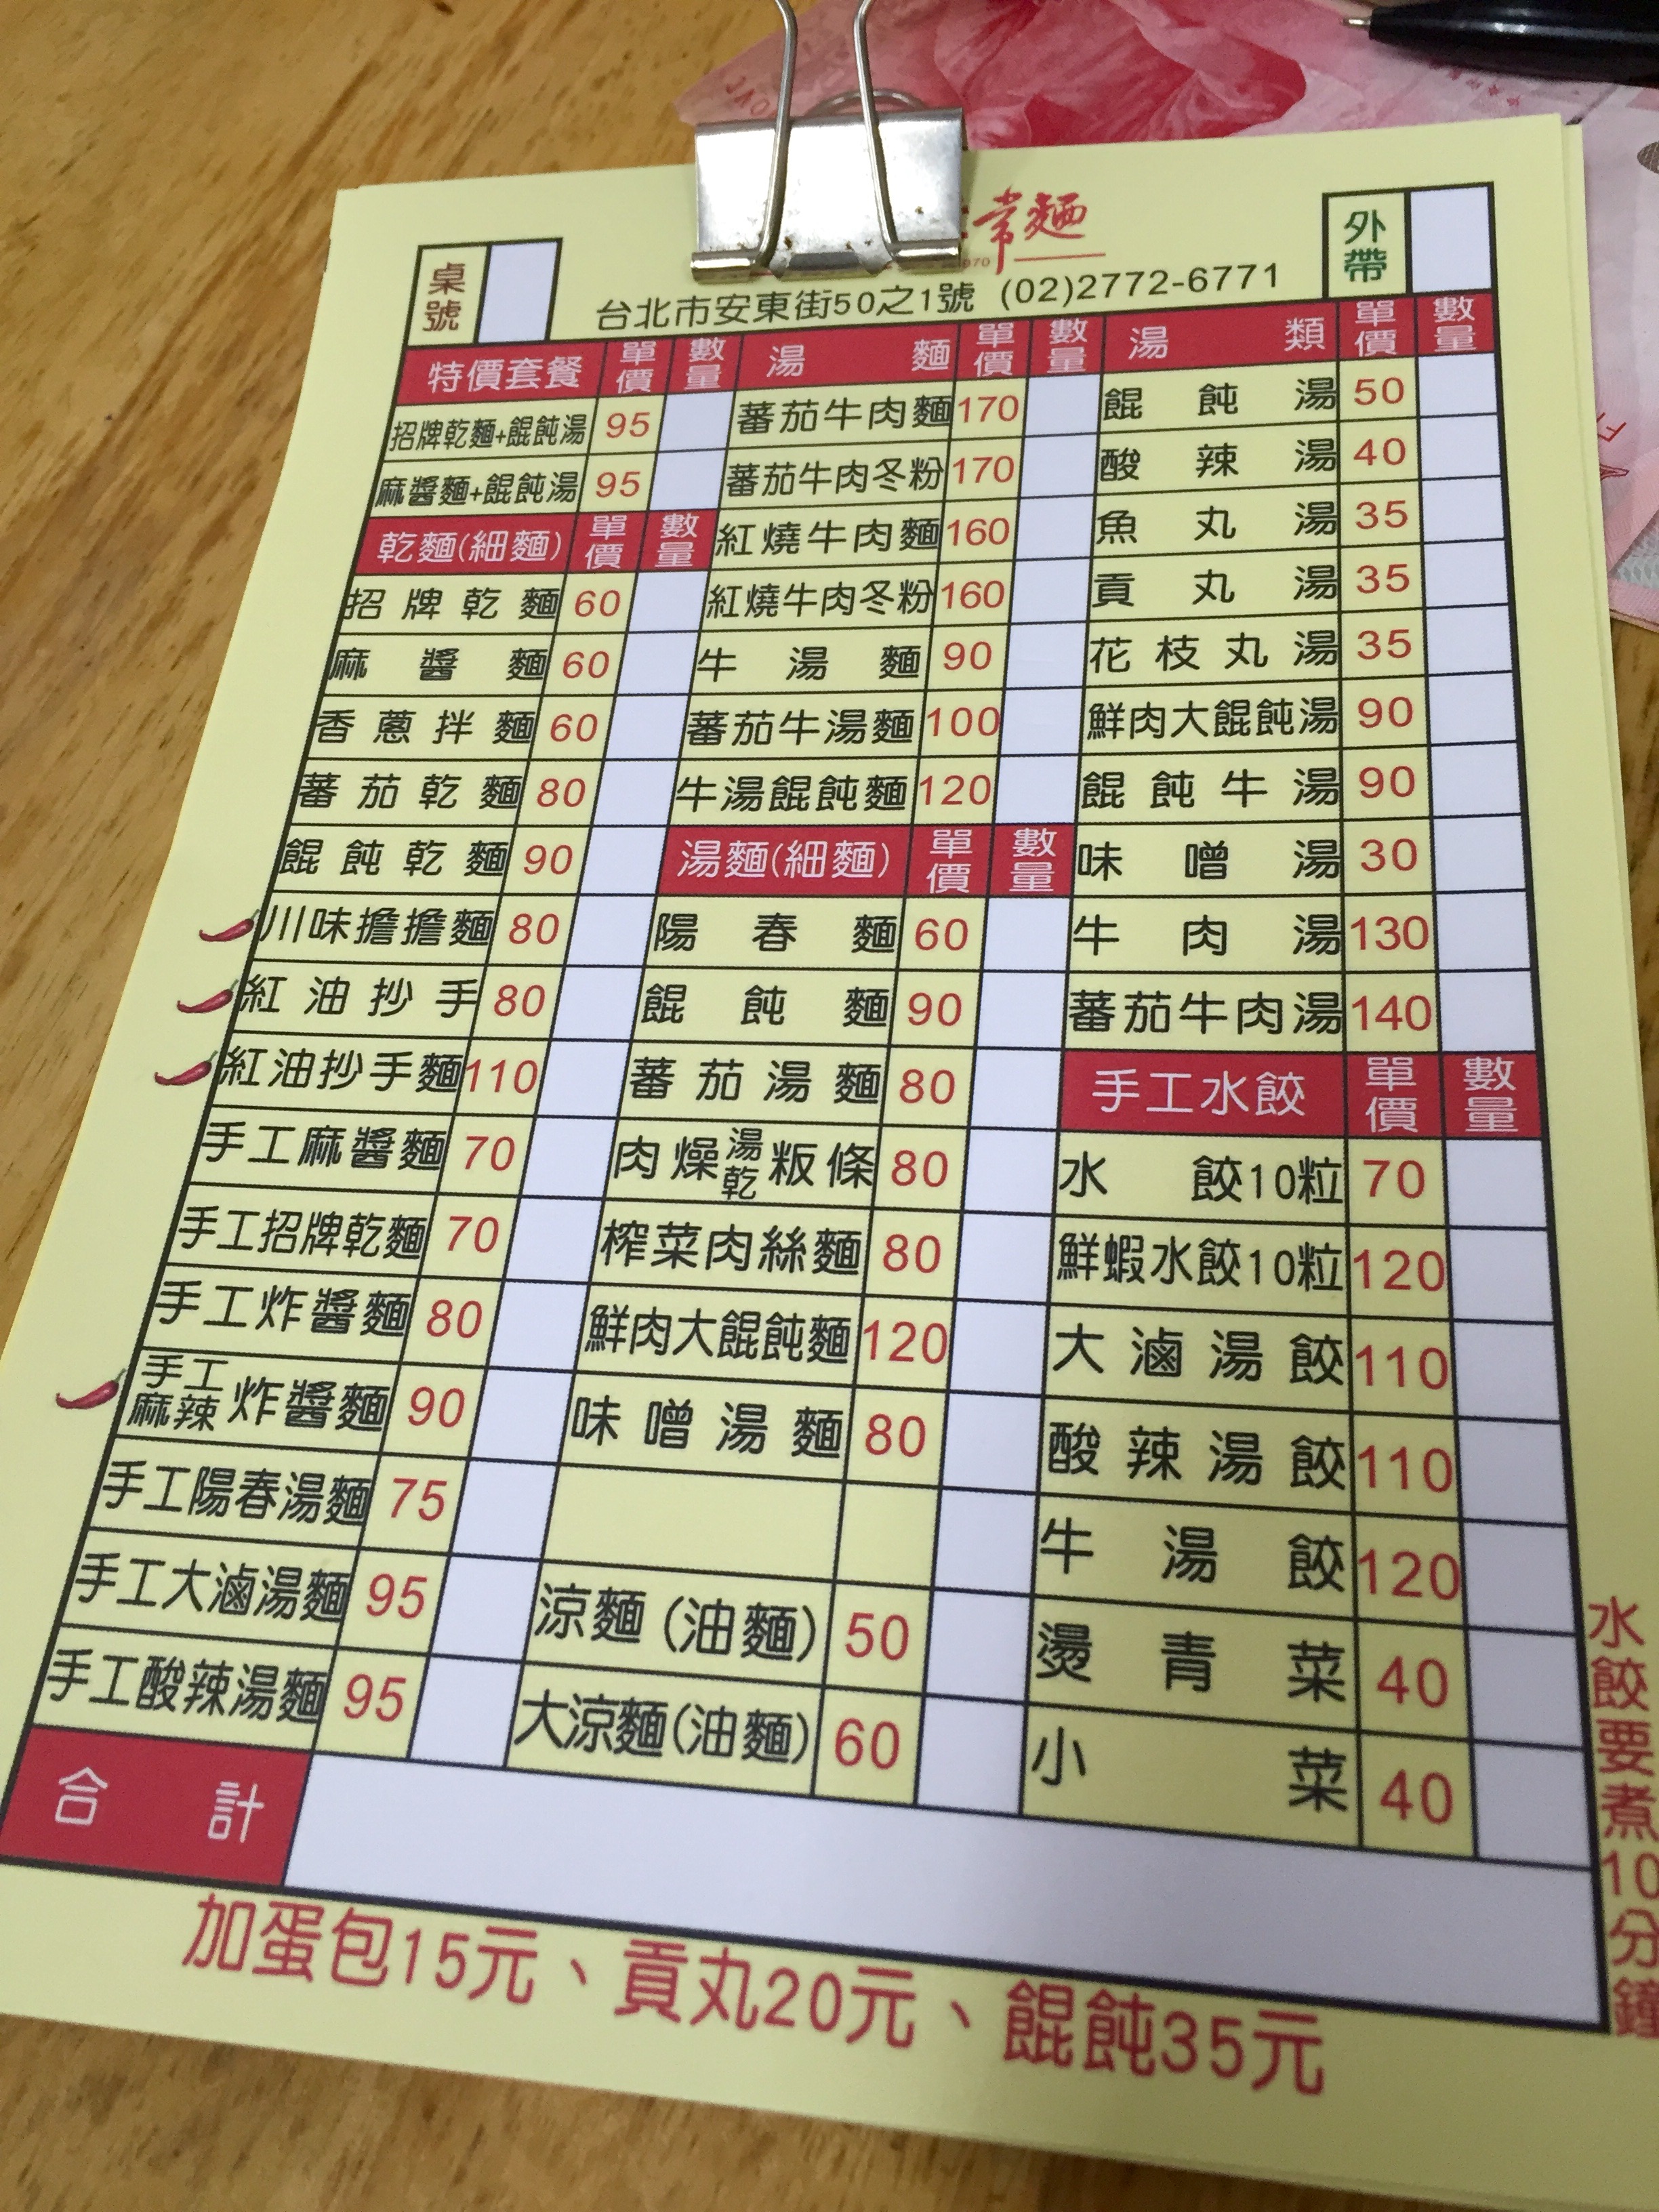 常麵
桌號
外帶
台北市安東街50之1號 (02)2772-6771
特價套餐 單價 數量
招牌乾麵+餛飩湯 95
麻醬麵+餛飩湯 95
乾麵(細麵) 單價 數量
招牌乾麵 60
麻醬麵 60
香蔥拌麵 60
蕃茄乾麵 80
餛飩乾麵 90
川味擔擔麵 80
紅油抄手 80
紅油抄手麵 110
手工麻醬麵 70
手工招牌乾麵 70
手工炸醬麵 80
手工麻辣炸醬麵 90
手工陽春湯麵 75
手工大滷湯麵 95
手工酸辣湯麵 95
湯麵 單價 數量
蕃茄牛肉麵 170
蕃茄牛肉冬粉 170
紅燒牛肉麵 160
紅燒牛肉冬粉 160
牛湯麵 90
蕃茄牛湯麵 100
牛湯餛飩麵 120
湯麵(細麵) 單價 數量
陽春麵 60
餛飩麵 90
蕃茄湯麵 80
肉燥湯乾粄條 80
榨菜肉絲麵 80
鮮肉大餛飩麵 120
味噌湯麵 80
涼麵(油麵) 50
大涼麵(油麵) 60
湯類 單價 數量
餛飩湯 50
酸辣湯 40
魚丸湯 35
貢丸湯 35
花枝丸湯 35
鮮肉大餛飩湯 90
餛飩牛湯 90
味噌湯 30
牛肉湯 130
蕃茄牛肉湯 140
手工水餃 單價 數量
水餃10粒 70
鮮蝦水餃10粒 120
大滷湯餃 110
酸辣湯餃 110
牛湯餃 120
燙青菜 40
小菜 40
合計
水餃要煮10分鐘
加蛋包15元、貢丸20元、餛飩35元